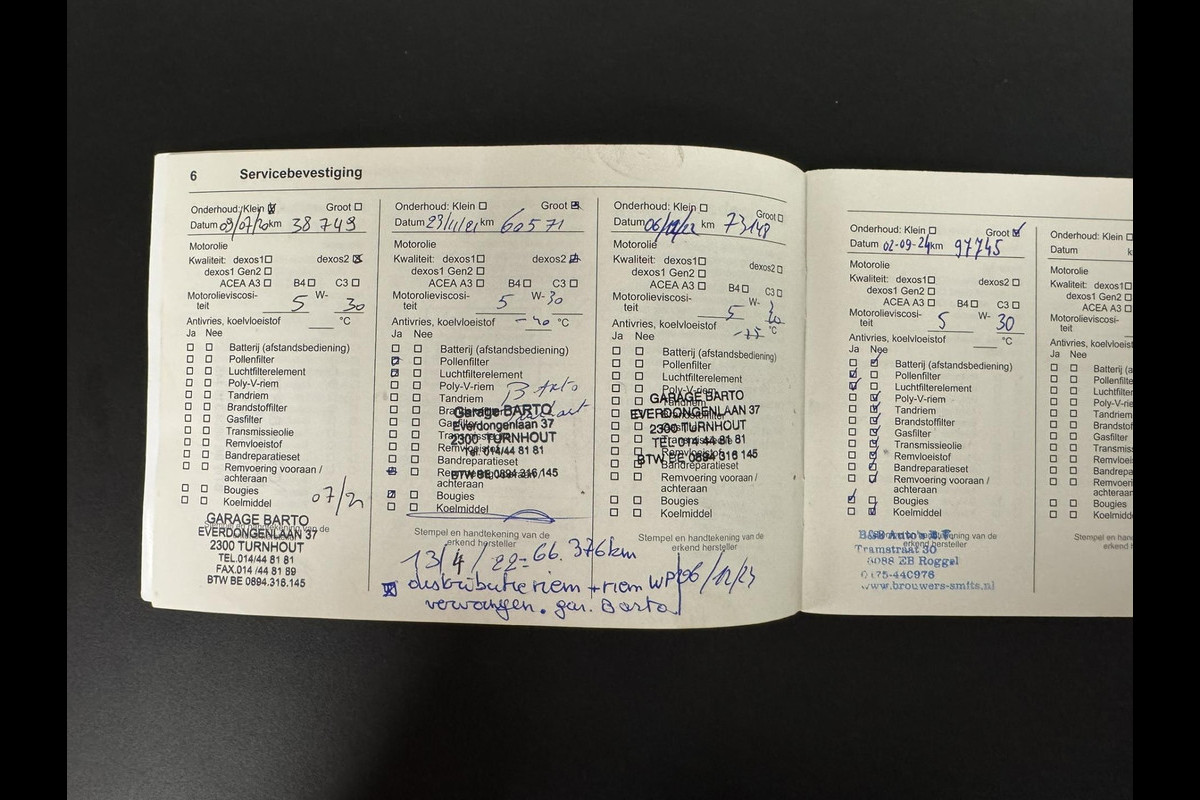 6 Servicebevestiging
Onderhoud: Klein Groot
Datum 09/07/20 km 38 749
Motorolie
Kwaliteit: dexos1 dexos2
dexos1 Gen2
ACEA A3 B4 C3
Motorolieviscosi-
teit 5 W- 30
Antivries, koelvloeistof °C
Ja Nee
Batterij (afstandsbediening)
Pollenfilter
Luchtfilterelement
Poly-V-riem
Tandriem
Brandstoffilter
Gasfilter
Transmissieolie
Remvloeistof
Bandreparatieset
Remvoering vooraan /
achteraan
Bougies
Koelmiddel
07/21
GARAGE BARTO
EVERDONGENLAAN 37
2300 TURNHOUT
TEL.014/44 81 81
FAX.014 /44 81 89
BTW BE 0894.316.145
Onderhoud: Klein Groot
Datum 23/11/21 km 60571
Motorolie
Kwaliteit: dexos1 dexos2
dexos1 Gen2
ACEA A3 B4 C3
Motorolieviscosi-
teit 5 W- 30
Antivries, koelvloeistof -40 °C
Ja Nee
Batterij (afstandsbediening)
Pollenfilter
Luchtfilterelement
Poly-V-riem
Tandriem
Garage BARTO
Everdongenlaan 37
2300 TURNHOUT
Tel. 014/44 81 81
Bandreparatieset
BTW BE 0894.316.145
achteraan
Bougies
Koelmiddel
Stempel en handtekening van de
erkend hersteller
13/4/22 = 66.376km
distributieriem + riem WP
vervangen. gar. Barto
Onderhoud: Klein Groot
Datum 06/12/22 km 73148
Motorolie
Kwaliteit: dexos1 dexos2
dexos1 Gen2
ACEA A3 B4 C3
Motorolieviscosi-
teit 5 W- 30
Antivries, koelvloeistof °C
Ja Nee
Batterij (afstandsbediening)
Pollenfilter
Luchtfilterelement
GARAGE BARTO
EVERDONGENLAAN 37
2300 TURNHOUT
TEL 014 44 81 81
BTW BE 0894 316 145
Bandreparatieset
Remvoering vooraan /
achteraan
Bougies
Koelmiddel
Stempel en handtekening van de
erkend hersteller
06/12/23
Onderhoud: Klein Groot
Datum 02-09-24 km 97745
Motorolie
Kwaliteit: dexos1 dexos2
dexos1 Gen2
ACEA A3 B4 C3
Motorolieviscosi-
teit 5 W- 30
Antivries, koelvloeistof °C
Ja Nee
Batterij (afstandsbediening)
Pollenfilter
Luchtfilterelement
Poly-V-riem
Tandriem
Brandstoffilter
Gasfilter
Transmissieolie
Remvloeistof
Bandreparatieset
Remvoering vooraan /
achteraan
Bougies
Koelmiddel
Tramstraat 30
6088 EB Roggel
0475-440976
www.brouwers-smits.nl
Onderhoud: Klein
Datum k
Motorolie
Kwaliteit: dexos1
dexos1 Gen2
ACEA A3
Motorolieviscosi-
teit
Antivries, koelvloeist
Ja Nee
Batterij (a
Pollenfilte
Luchtfilter
Poly-V-rie
Tandriem
Brandstof
Gasfilter
Transmiss
Remvloeis
Bandrepa
Remvoeri
achteraan
Bougies
Koelmidd
Stempel en hand
erkend h